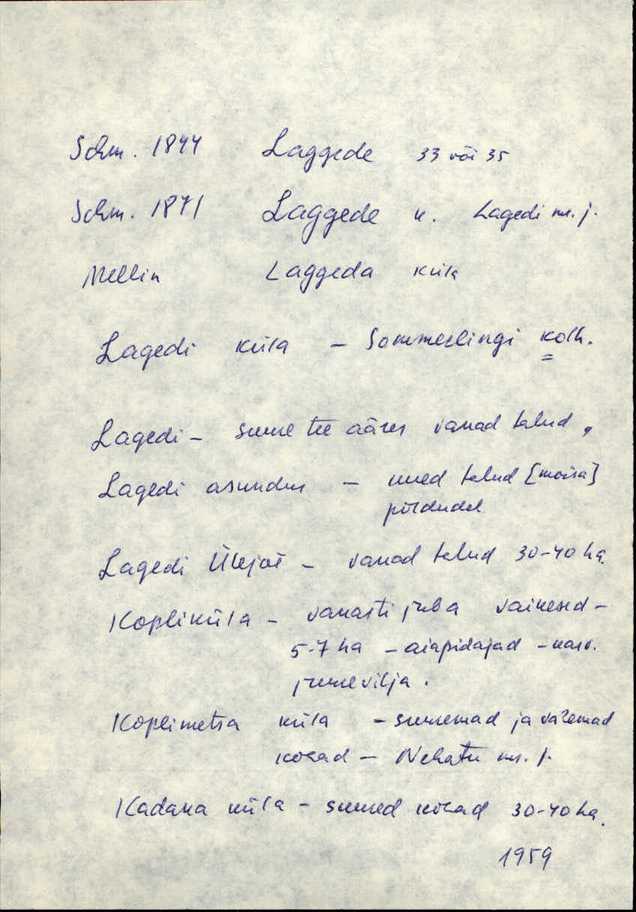 Schm. 1844 Laggede 33 või 35
Schm. 1871 Laggede k. Lagedi m. j.
Mellin Laggeda küla
Lagedi küla – Sommerlingi kolh.
Lagedi – suure tee ääres vanad talud,
Lagedi asundus – uued talud [mõisa]
põldudel
Lagedi Ülejõe – vanad talud 30-40 ha.
Kopliküla – vanasti juba väikesed –
5-7 ha – aiapidajad – kasv.
juurvilja.
Koplimetsa küla – suuremad ja väiksemad
kohad – Nehatu m. j.
Kadaka küla – suured kohad 30-40 ha.
1959